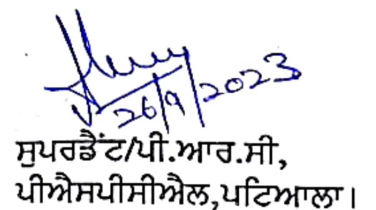 26/9/2023
ਸੁਪਰਡੈਂਟ/ਪੀ.ਆਰ.ਸੀ,
ਪੀਐਸਪੀਸੀਐਲ,ਪਟਿਆਲਾ।